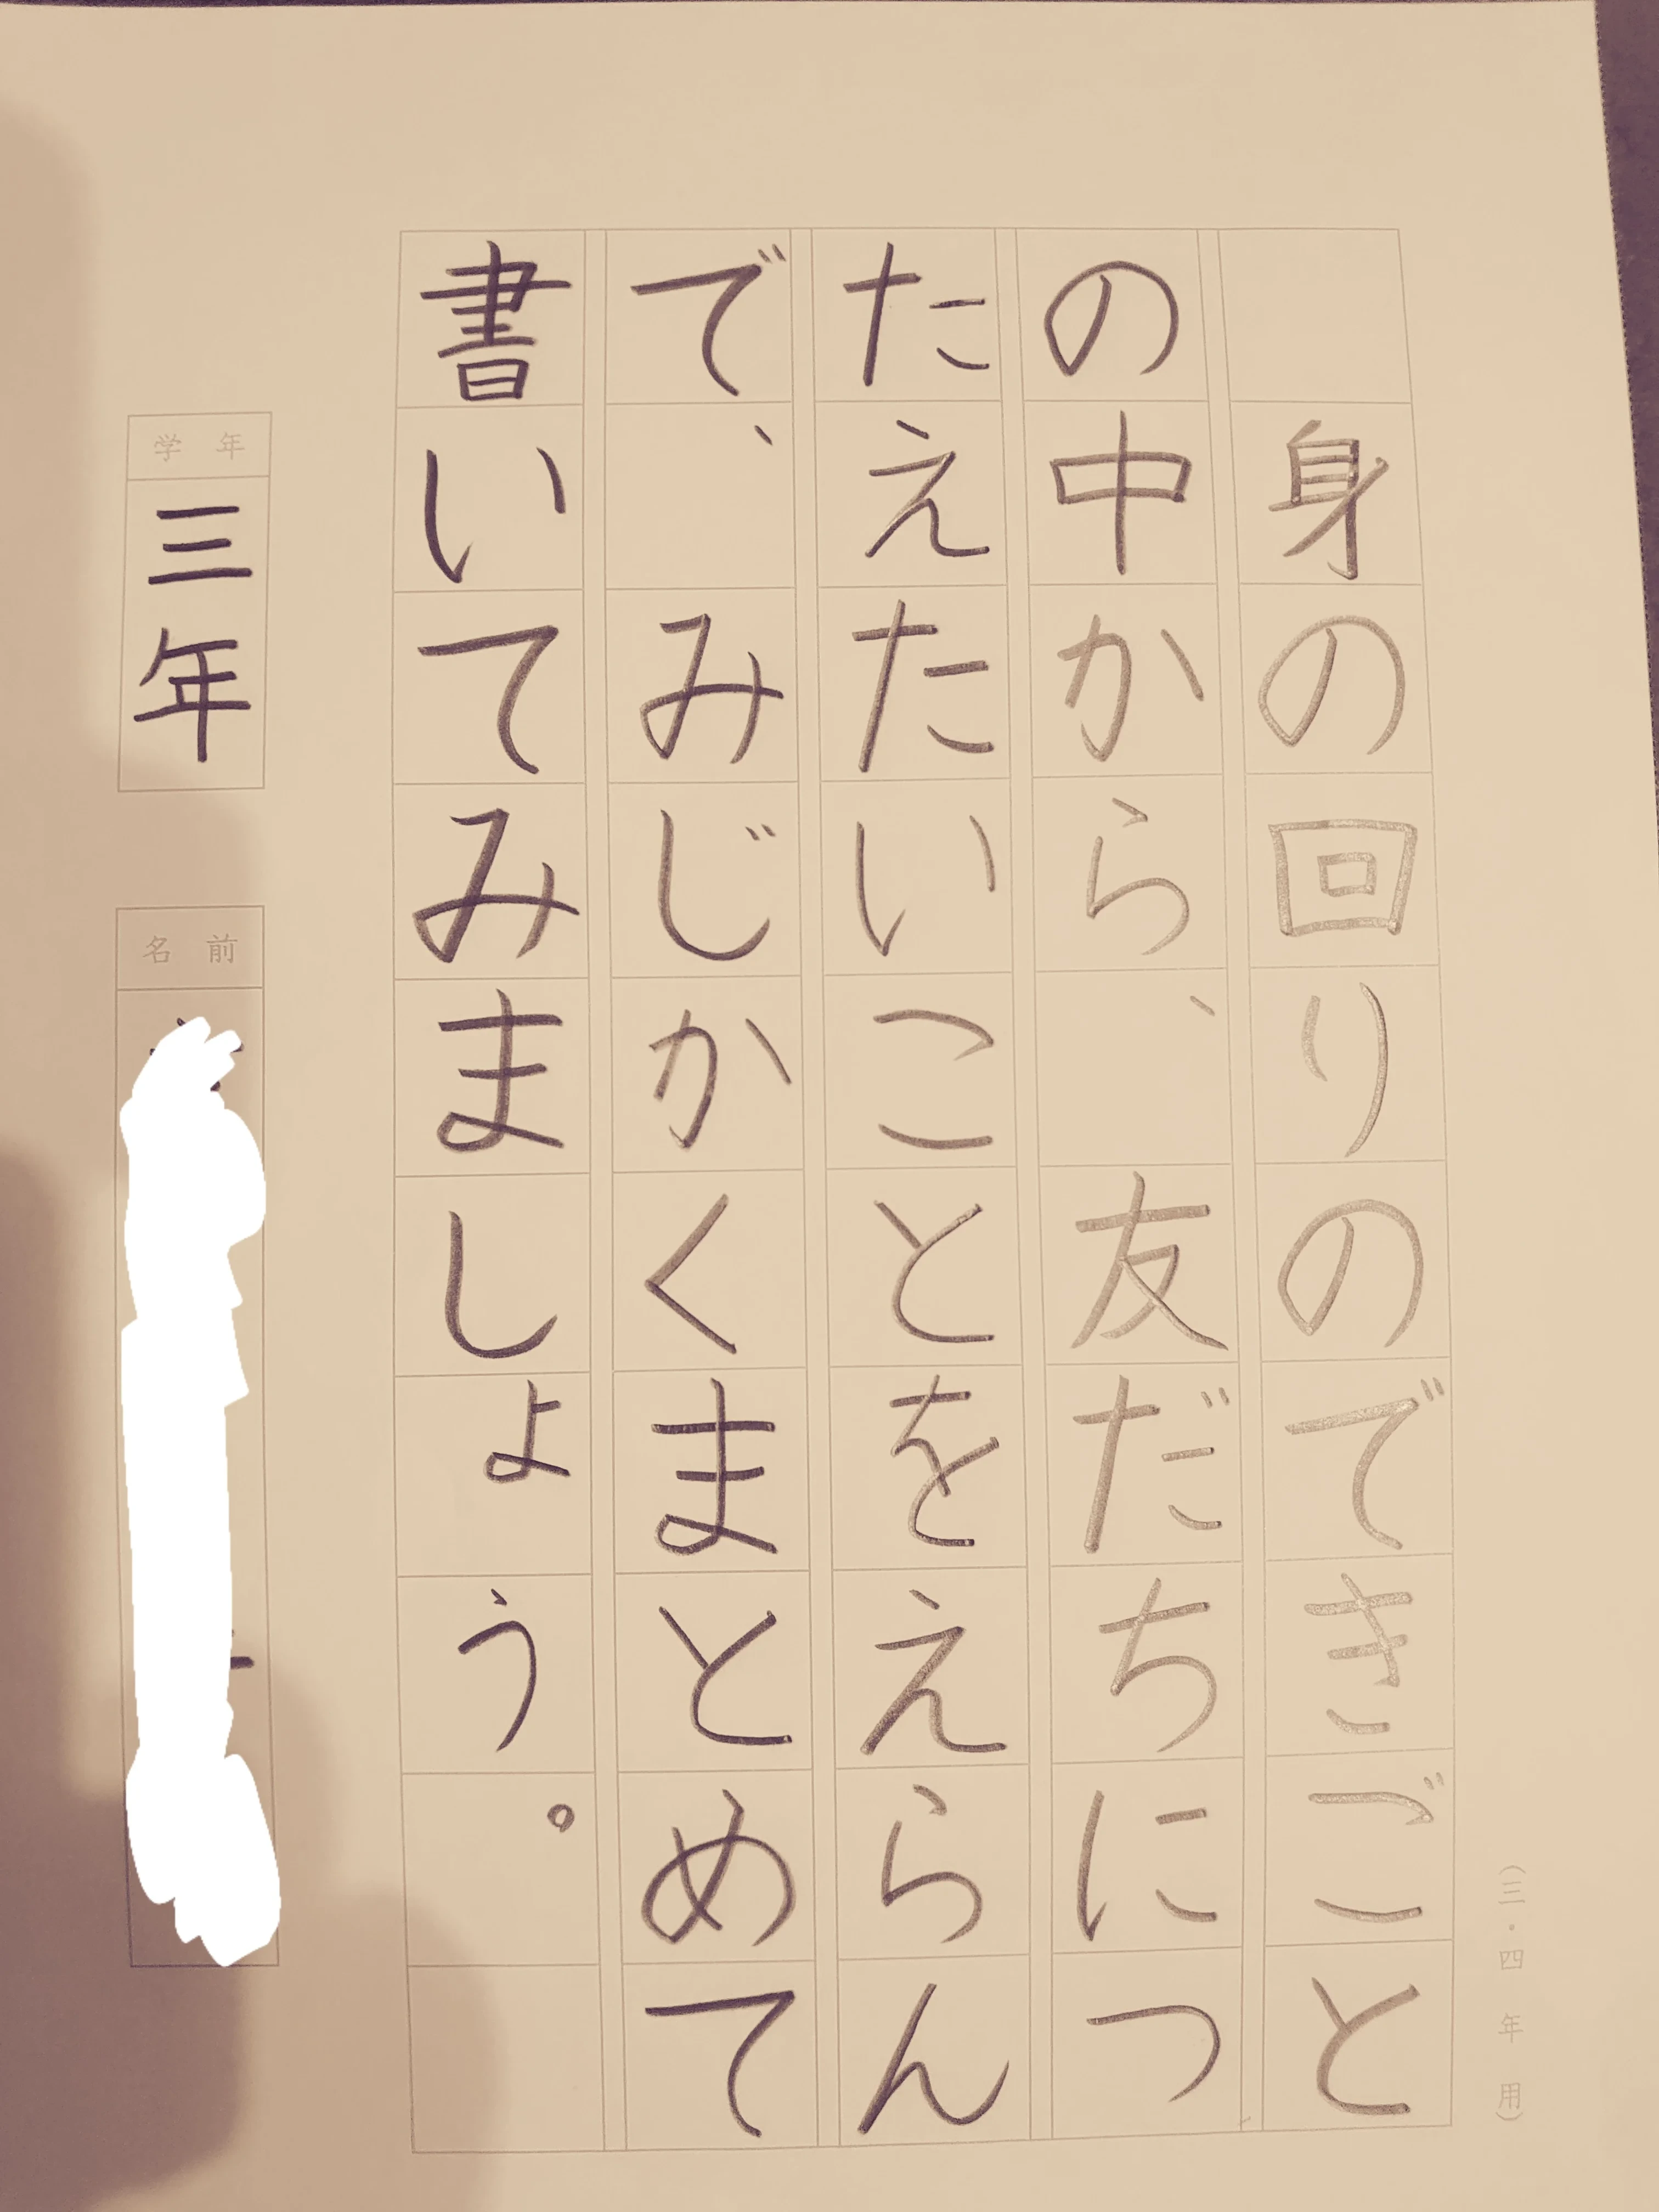 (三・四年用)
身の回りのできごと
の中から、友だちにつ
たえたいことをえらん
で、みじかくまとめて
書いてみましょう。
学年
三年
名前